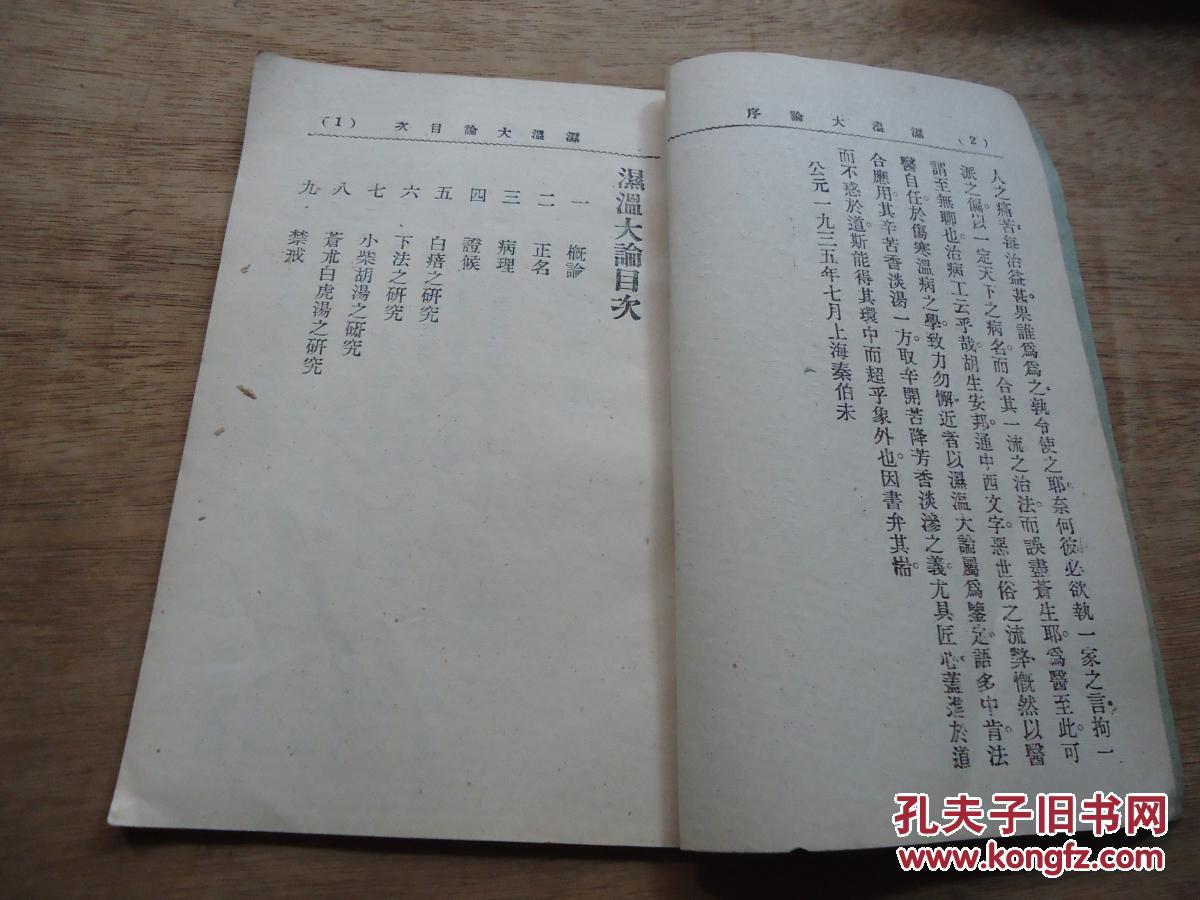 濕溫大論序 (2)
人之痛苦每治益甚。果誰爲爲之。孰令使之耶。奈何彼必欲執一家之言。拘一
派之偏。以一定天下之病名。而合其一流之治法。而誤盡蒼生耶。爲醫至此。可
謂至無聊也。治病工云乎哉。胡生安邦。通中西文字。惡世俗之流弊。慨然以醫
醫自任。於傷寒溫病之學。致力勿懈。近著以濕溫大論屬爲鑒定。語多中肯。法
合應用。其辛苦香淡湯一方。取辛開苦降芳香淡滲之義。尤具匠心。蓋進於道
而不惑於道。斯能得其環中而超乎象外也。因書弁其耑。
公元一九三五年七月上海秦伯未
濕溫大論目次 (1)
濕溫大論目次
一 概論
二 正名
三 病理
四 證候
五 白㾦之研究
六 下法之研究
七 小柴胡湯之研究
八 蒼朮白虎湯之研究
九 禁戒
孔夫子旧书网
www.kongfz.com